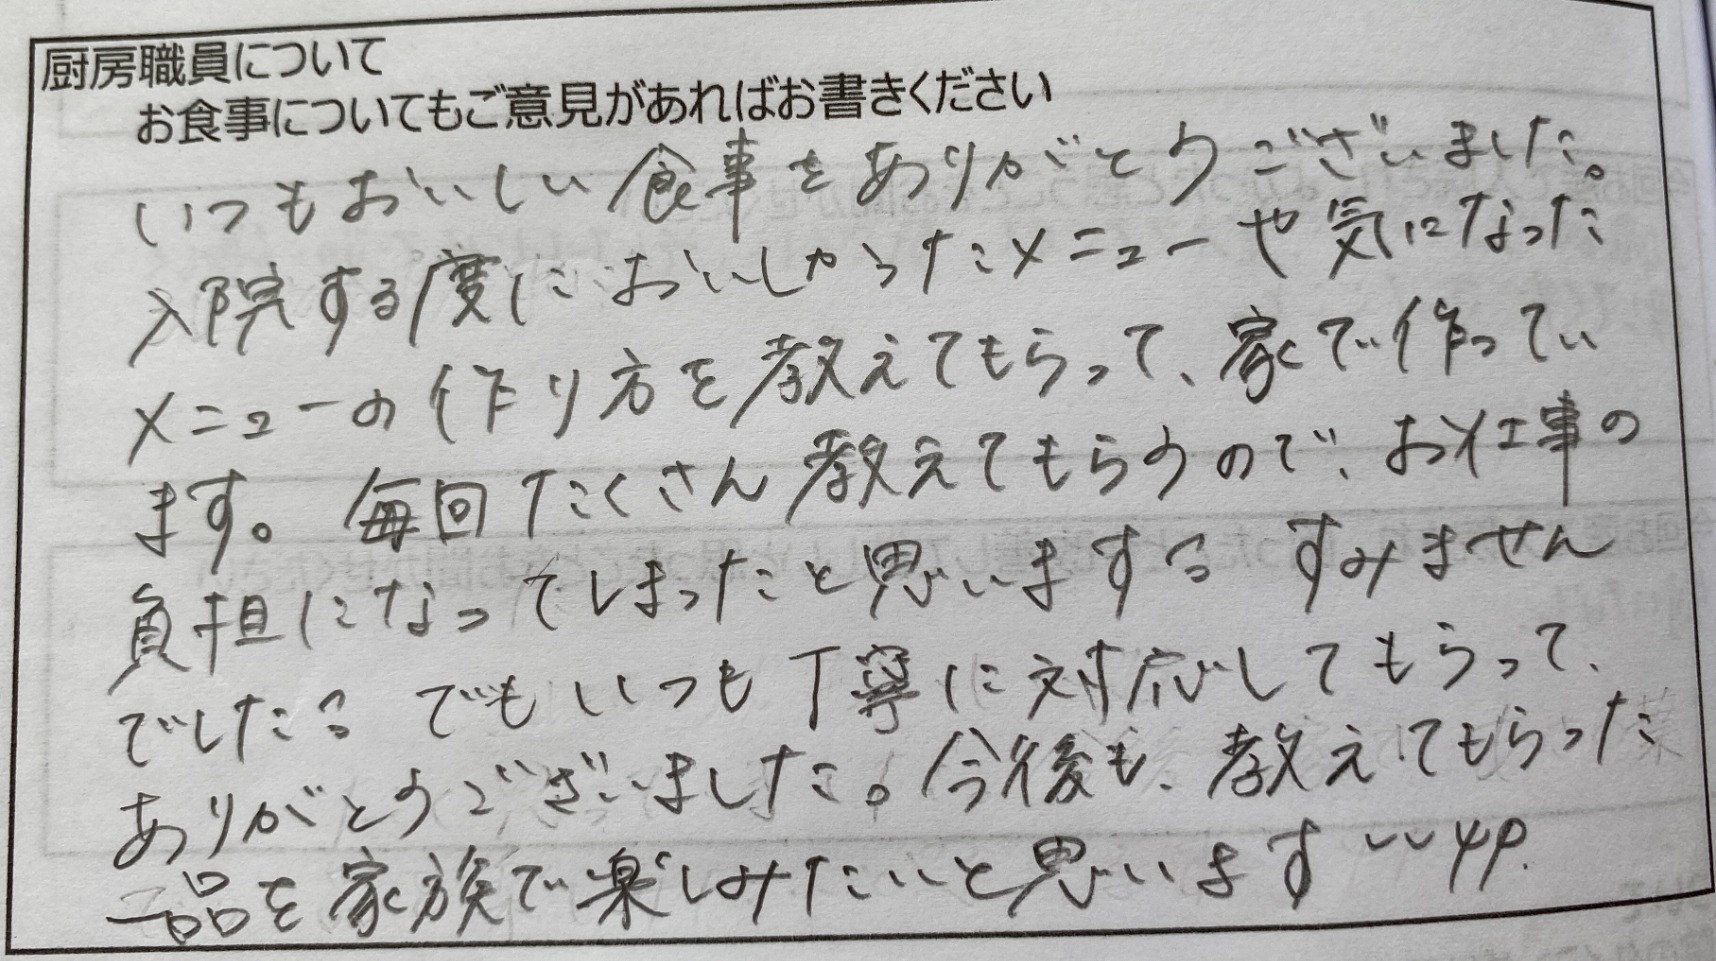 厨房職員について
お食事についてもご意見があればお書きください
いつもおいしい食事をありがとうございました。
入院する度においしかったメニューや気になった
メニューの作り方を教えてもらって、家で作ってい
ます。毎回たくさん教えてもらうので、お仕事の
負担になってしまったと思います すみません
でした でもいつも丁寧に対応してもらって、
ありがとうございました。今後も、教えてもらった
一品を家族で楽しみたいと思います